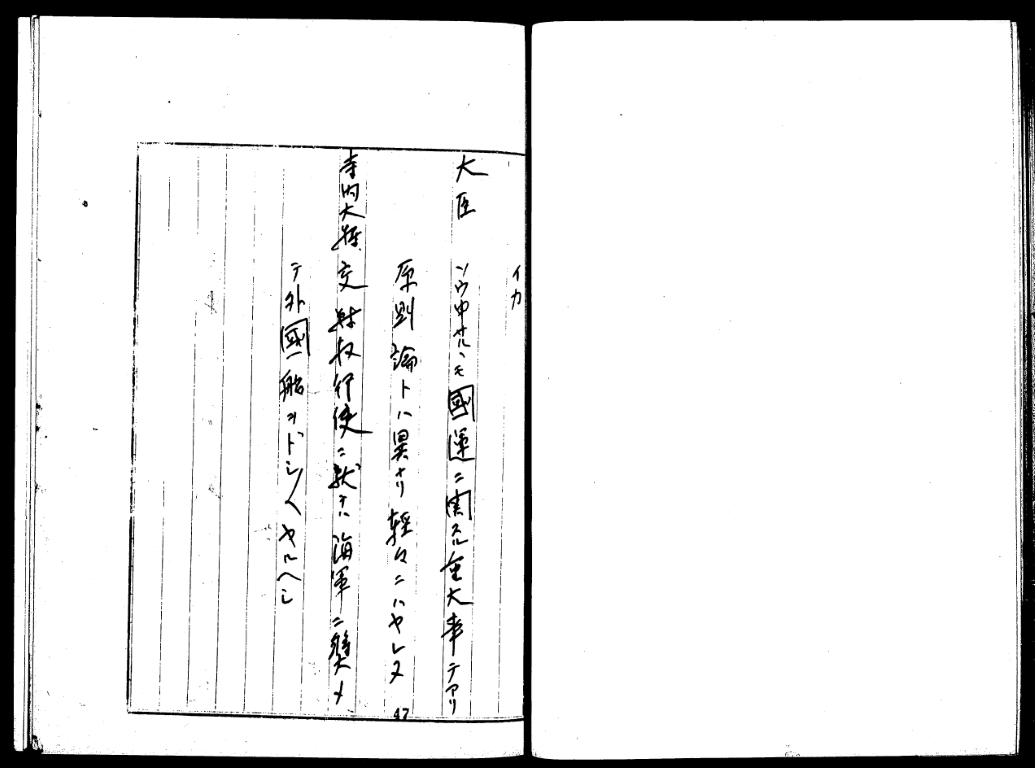 イカ
大臣 ソウ申サルヽモ國運ニ関スル重大事テアリ
原則論トハ異ナリ軽々ニハヤレヌ
寺内大 交 権行使ニ就テハ海軍ニ奨メ
テ外國船ヲドシ／＼ヤルヘシ
47